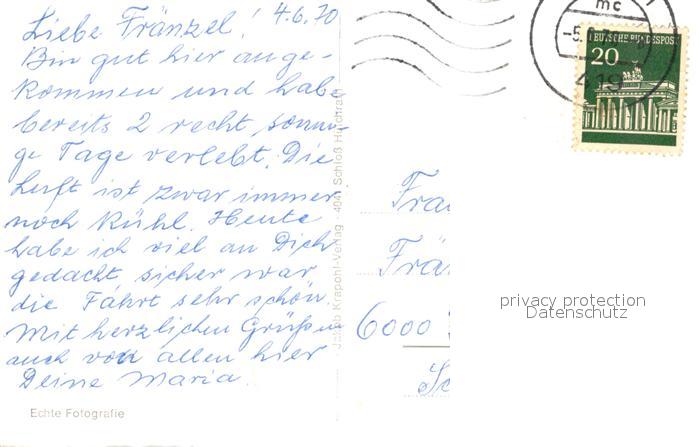 4.6.70
Liebe Fränzel!
Bin gut hier ange-
kommen und habe
bereits 2 recht sonni-
ge Tage verlebt. Die
Luft ist zwar immer
noch kühl. Heute
habe ich viel an Dich
gedacht, sicher war
die Fahrt sehr schön.
Mit herzlichen Grüßen
auch von allen hier
Deine Maria.
Echte Fotografie
Krapohl-Verlag 4041 Schloß
mc
-5.6.
419
DEUTSCHE BUNDESPOST
20
Frä
6000
privacy protection
Datenschutz